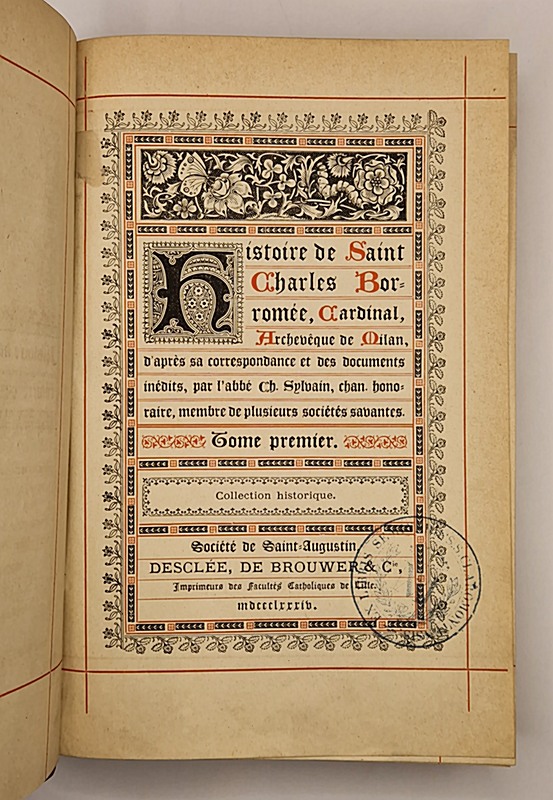 Histoire de Saint
Charles Bor-
romée, Cardinal,
Archevêque de Milan,
d'après sa correspondance et des documents
inédits, par l'abbé Ch. Sylvain, chan. hono-
raire, membre de plusieurs sociétés savantes.
Tome premier.
Collection historique.
Société de Saint-Augustin
DESCLÉE, DE BROUWER & Cie,
Imprimeurs des Facultés Catholiques de Lille.
mdccclxxxiv.